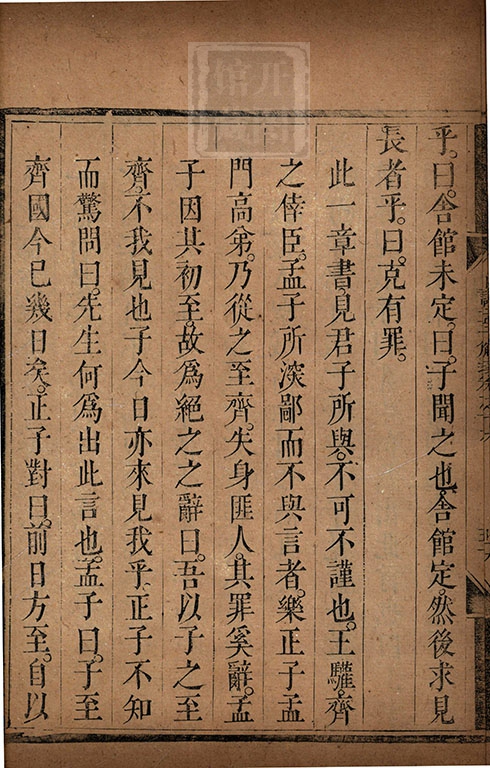 乎。曰。舍館未定。曰。子聞之也。舍館定。然後求見
長者乎。曰。克有罪。
此一章書。見君子所與。不可不謹也。王驩。齊
之倖臣。孟子所深鄙而不與言者。樂正子孟
門高弟。乃從之至齊。失身匪人。其罪奚辭。孟
子因其初至。故爲絕之之辭曰。吾以子之至
齊。不我見也。子今日亦來見我乎。正子不知
而驚問曰。先生何爲出此言也。孟子曰。子至
齊國今已幾日矣。正子對曰。前日方至。自以